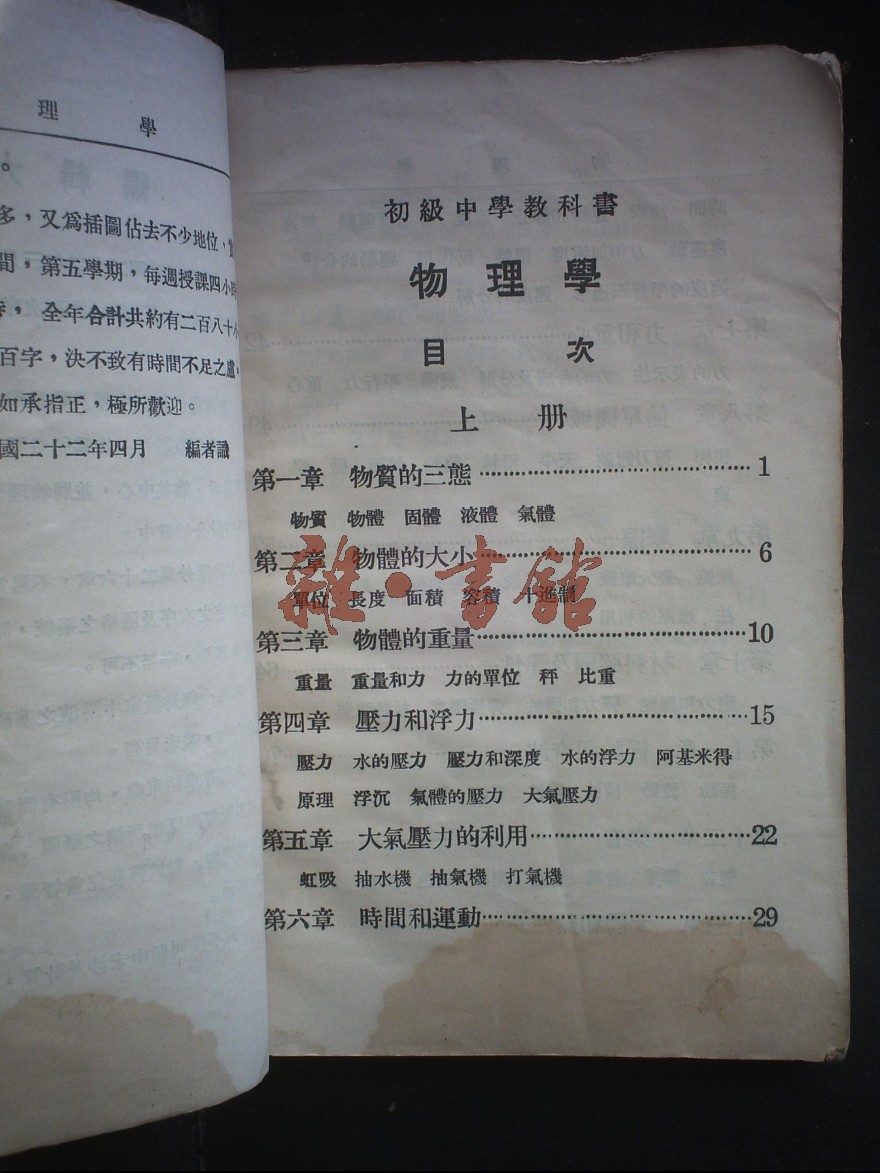 理 學
。
多，又為插圖佔去不少地位，
間，第五學期，每週授課四小時
， 全年合計共約有二百八十小
百字，決不致有時間不足之處，
如承指正，極所歡迎。
國二十二年四月 編者識
初級中學教科書
物理學
目 次
上 册
第一章 物質的三態 1
物質 物體 固體 液體 氣體
第二章 物體的大小 6
單位 長度 面積 容積 十進制
第三章 物體的重量 10
重量 重量和力 力的單位 秤 比重
第四章 壓力和浮力 15
壓力 水的壓力 壓力和深度 水的浮力 阿基米得
原理 浮沉 氣體的壓力 大氣壓力
第五章 大氣壓力的利用 22
虹吸 抽水機 抽氣機 打氣機
第六章 時間和運動 29
雜·書館